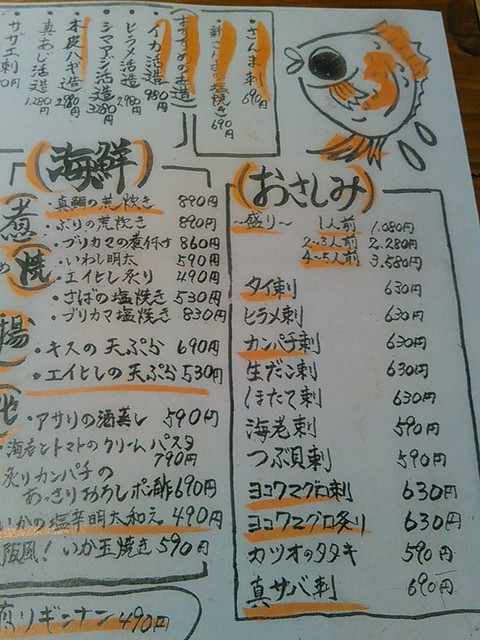 さんま刺 690円
新さんまの塩焼き 690円
イカ活造 980円
ヒラメ活造 2,980
シマアジ活造 3,280円
本皮ハギ造 2,980
真あじ活造 1,280円
サザエ刺
海鮮
煮
・真鯛の荒炊き 890円
・ぶりの荒炊き 890円
・ブリカマの煮付け 860円
焼
・いわし明太 590円
・エイヒレ炙り 490円
・さばの塩焼き 530円
・ブリカマ塩焼き 830円
揚
・キスの天ぷら 690円
・エイヒレの天ぷら 530円
・アサリの酒蒸し 590円
・海老とトマトのクリームパスタ 790円
炙りカンパチの
あっさりおろしポン酢 690円
いかの塩辛明太和え 490円
阪風!いか玉焼き 590円
煎りギンナン 490円
おさしみ
〜盛り〜 1人前 1,080円
2〜3人前 2,280円
4〜5人前 3,580円
タイ刺 630円
ヒラメ刺 630円
カンパチ刺 630円
生だこ刺 630円
ほたて刺 630円
海老刺 590円
つぶ貝刺 590円
ヨコワマグロ刺 630円
ヨコワマグロ炙り 630円
カツオのタタキ 590円
真サバ刺 690円